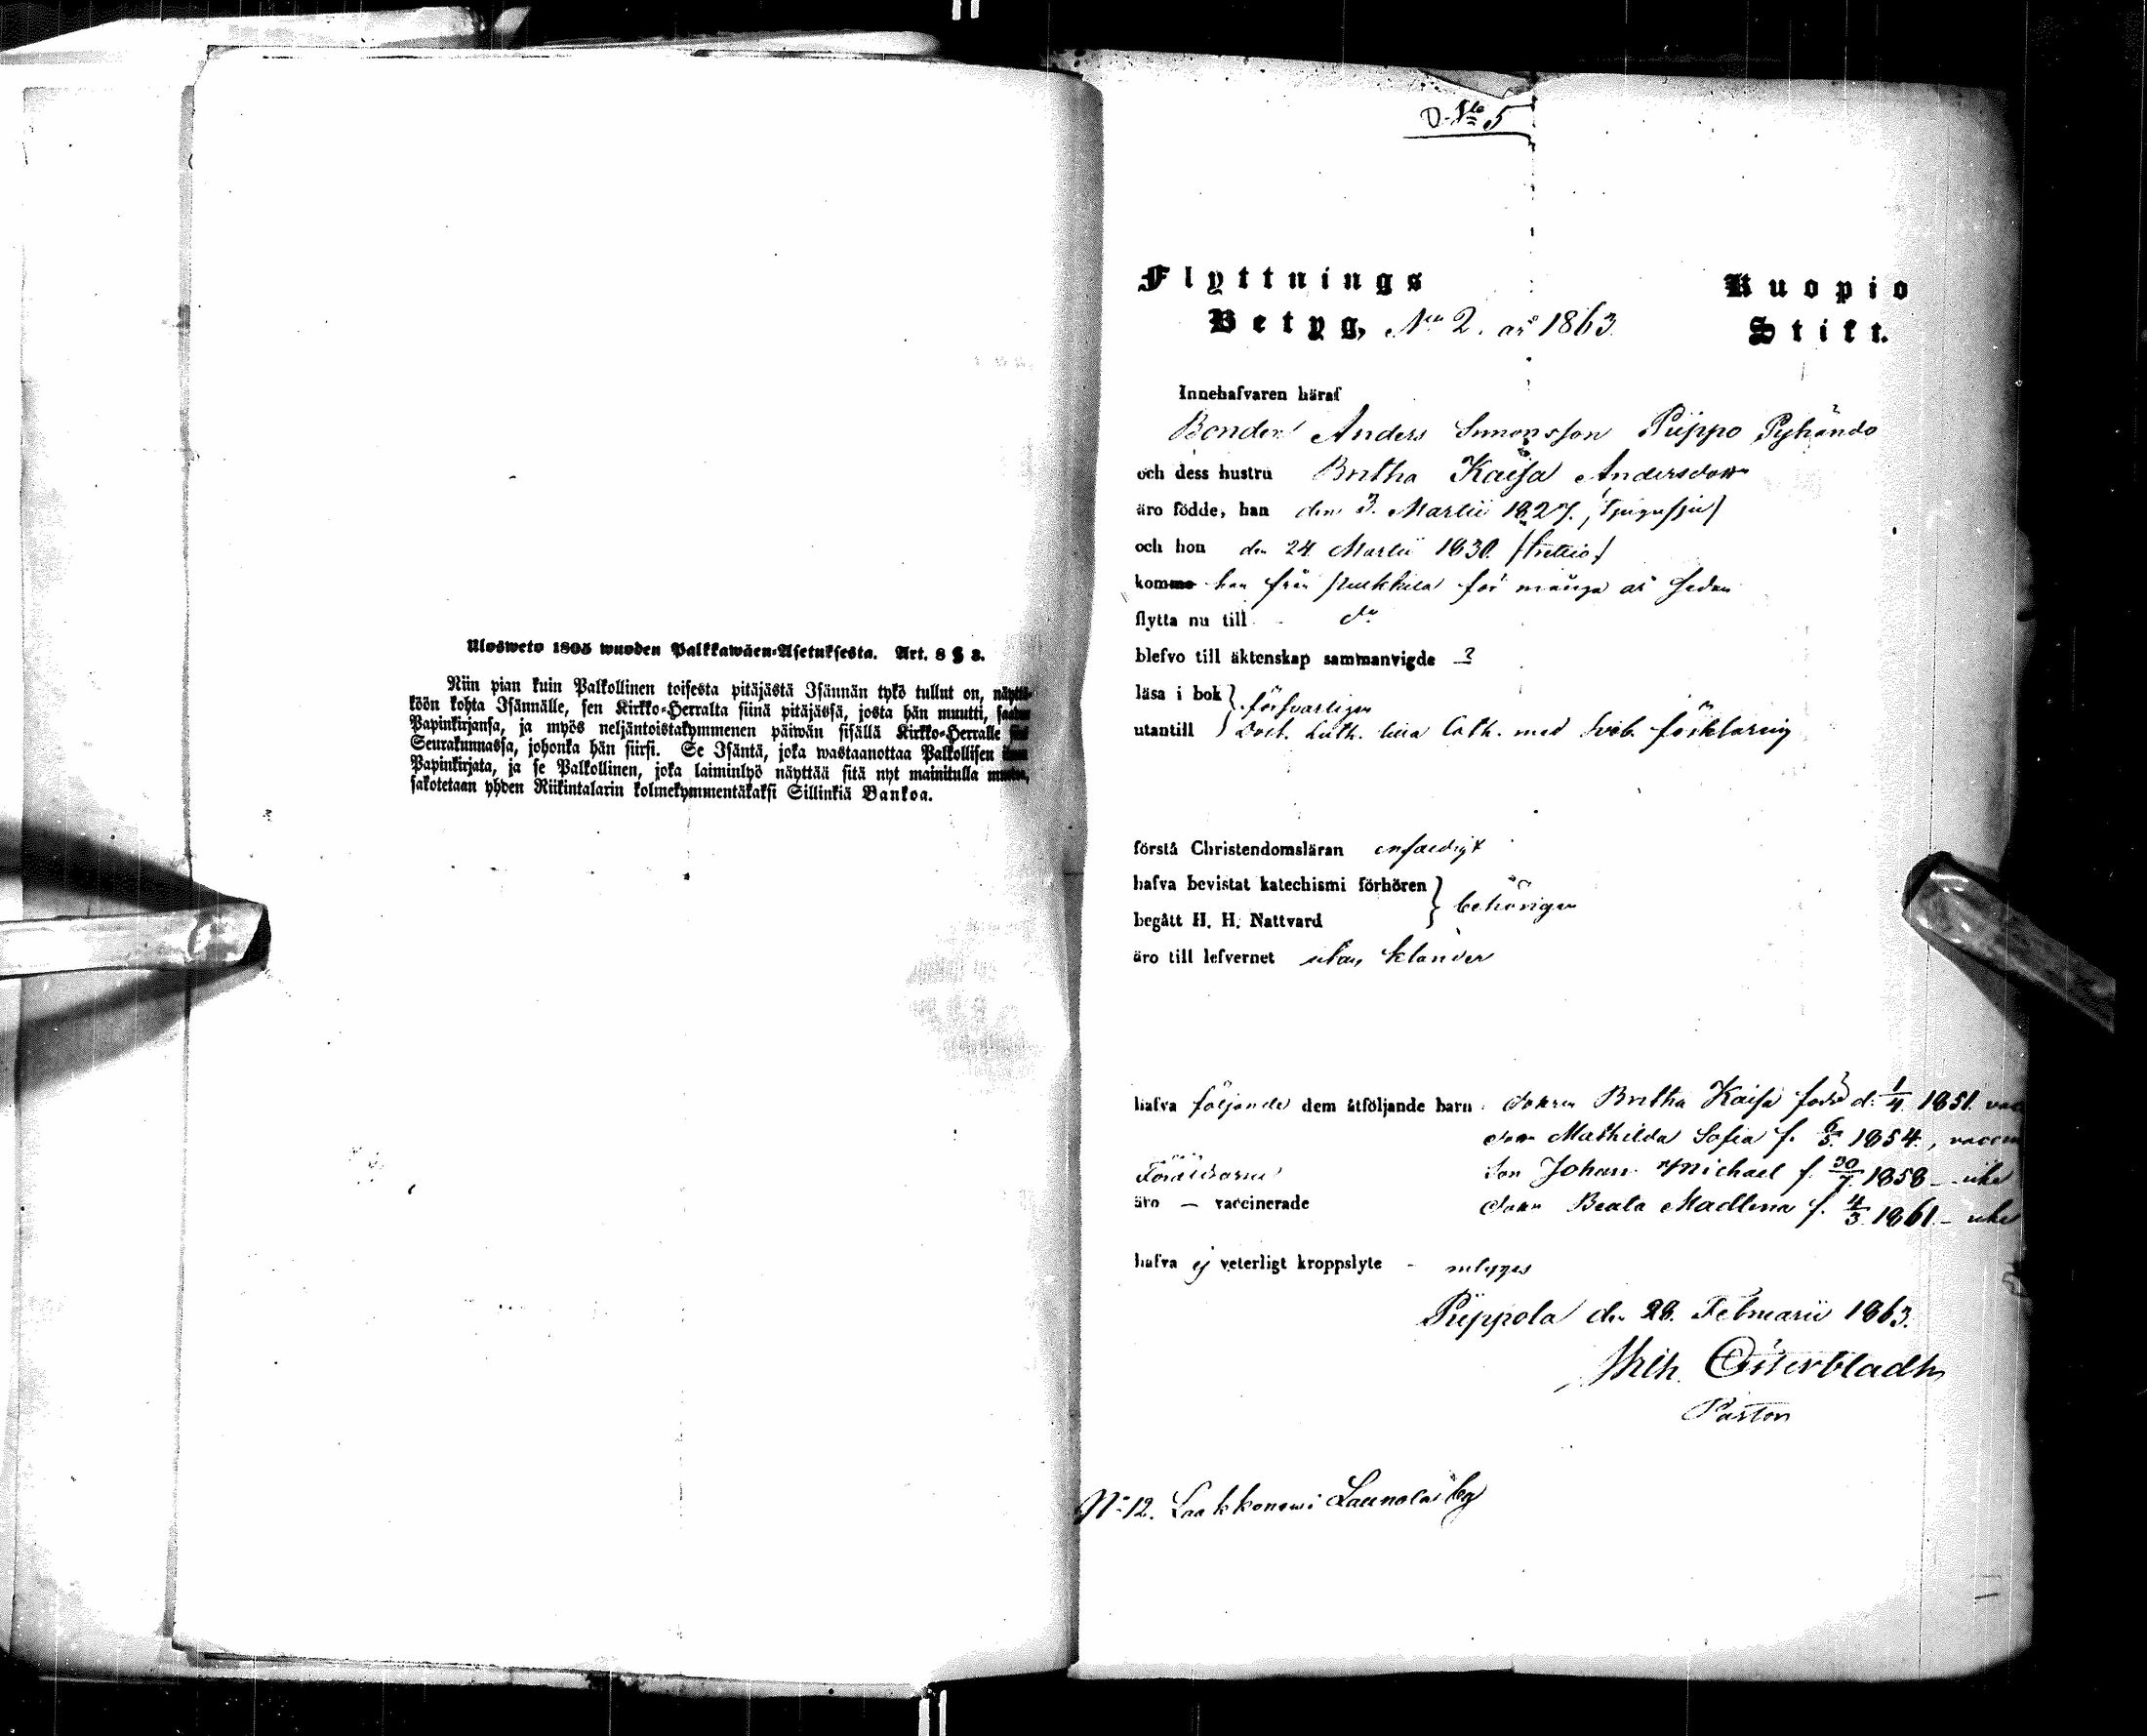 Ulosweto 1805 wuoden Palkkawäen-Asetuksesta. Art. 8 § 3.
Niin pian kuin Palkollinen toisesta pitäjästä Isännän tykö tullut on,
köön kohta Isännälle, sen Kirkko-Herralta siinä pitäjässä, josta hän muutti,
Papinkirjansa, ja myös neljäntoistakymmenen päiwän sisällä Kirkko-Herralle
Seurakunnassa, johonka hän siirsi. Se Isäntä, joka wastaanottaa Palkollisen
Papinkirjata, ja se Palkollinen, joka laiminlyö näyttää sitä nyt mainitulla
sakotetaan yhden Riikintalarin kolmekymmentäkaksi Sillinkiä Bankoa.
No 5
Flyttnings
Betyg, No 2. år 1863.
Kuopio
Stift.
Innehafvaren häraf
Bonden Anders Simonsson Piippo
och dess hustru Britha Kaisa Andersdotter
äro födde, han den 3. Martii 1827. (Tjugusju)
och hon den 24 Martii 1830. (trettio)
komme han från för många år sedan
flytta nu till do
blefvo till äktenskap sammanvigde ?
läsa i bok } försvarligen
utantill } Luth. lilla Cath. med Sveb. förklaring
förstå Christendomsläran enfaldigt
hafva bevistat katechismi förhören }
begått H. H. Nattvard } behörigen
äro till lefvernet utan klander
hafva följande dem åtföljande barn: Britha Kaisa född d. 1/4 1851.
Mathilda Sofia f. 6/5 1854.,
Föräldrarne Son Johan Michael f. 30/7 1858 –
äro – vaccinerade Beata Madlena f. 4/3 1861 –
hafva ej veterligt kroppslyte -
Piippola den 28. Februarii 1863.
Wilh. Österbladh
Pastor
No 12. Laakkonen i Launola by